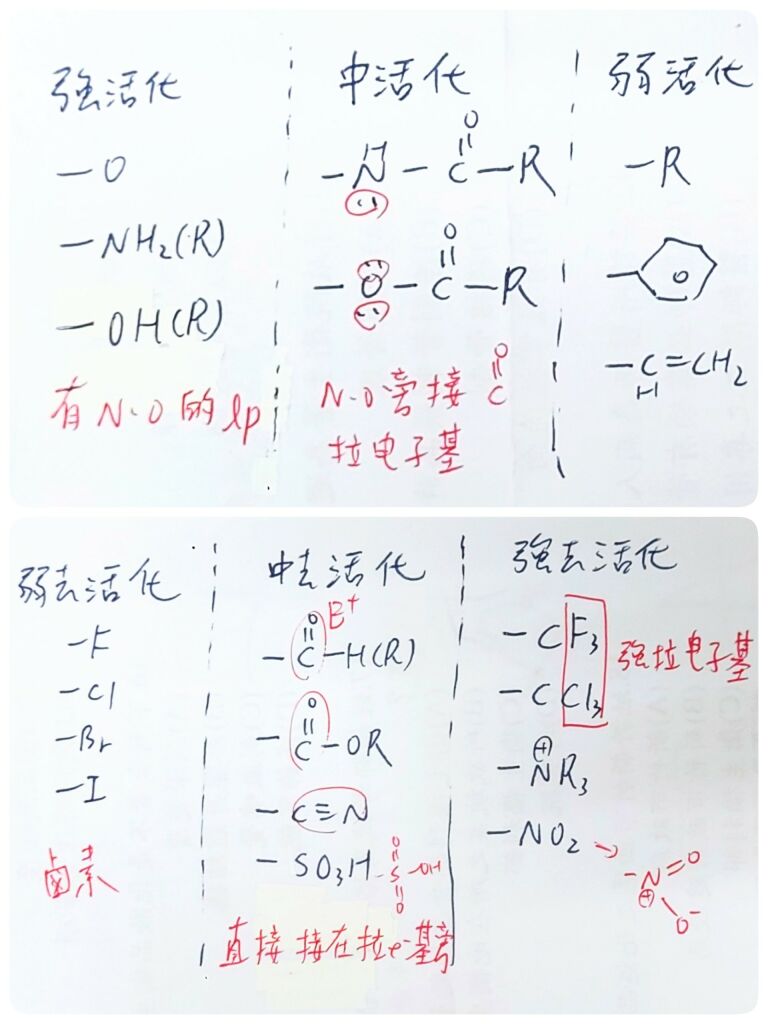 强活化
—O
—NH₂(R)
—OH(R)
有 N、O 的 lp
中活化
H O
—N—C—R
O
—O—C—R
N、O 旁接 C=O
拉电子基
弱活化
—R
—C=CH₂
H
弱去活化
—F
—Cl
—Br
—I
鹵素
中去活化
O E⁺
—C—H(R)
O
—C—OR
—C≡N
—SO₃H
O
S—OH
O
直接 接在拉e⁻基旁
强去活化
—CF₃
—CCl₃
强拉电子基
⊕
—NR₃
—NO₂ →
—N=O
⊕
O⁻